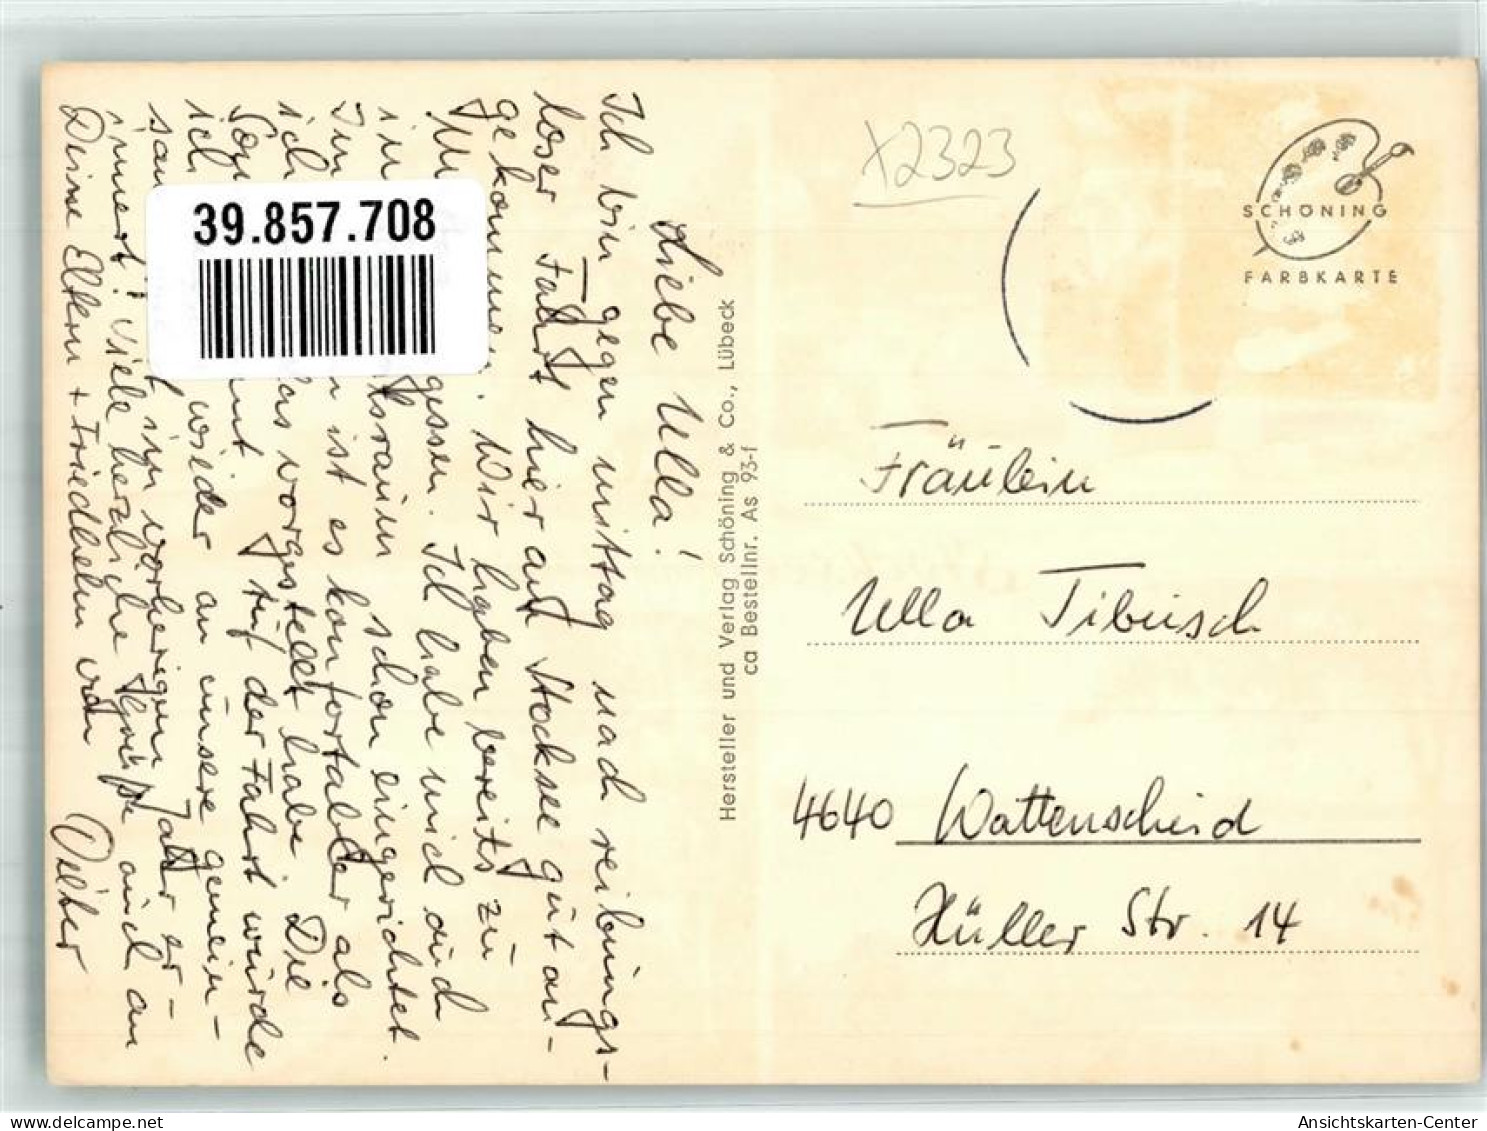 Liebe Ulla!
Ich bin gegen mittag nach reibungs-
loser Fahrt hier auf Stocksee gut an-
gekommen. Wir haben bereits zu
M gessen. Ich habe mich auch
in tsraum schon eingerichtet.
Im n ist es komfortabler als
ich as vorgestellt habe. Die
Son nt auf der Fahrt würde
ich wieder an unsere gemein-
sam im vorherigen Jahr er-
innert! Viele herzliche Grüße auch an
Deine Eltern + Friedhelm von
Dieter
39.857.708
Hersteller und Verlag Schöning & Co., Lübeck
ca Bestellnr. As 93-f
X2323
SCHÖNING
FARBKARTE
Fräulein
Ulla Tibusch
4640 Wattenscheid
Hüller Str. 14
delcampe.net
muruquem
Ansichtskarten-Center